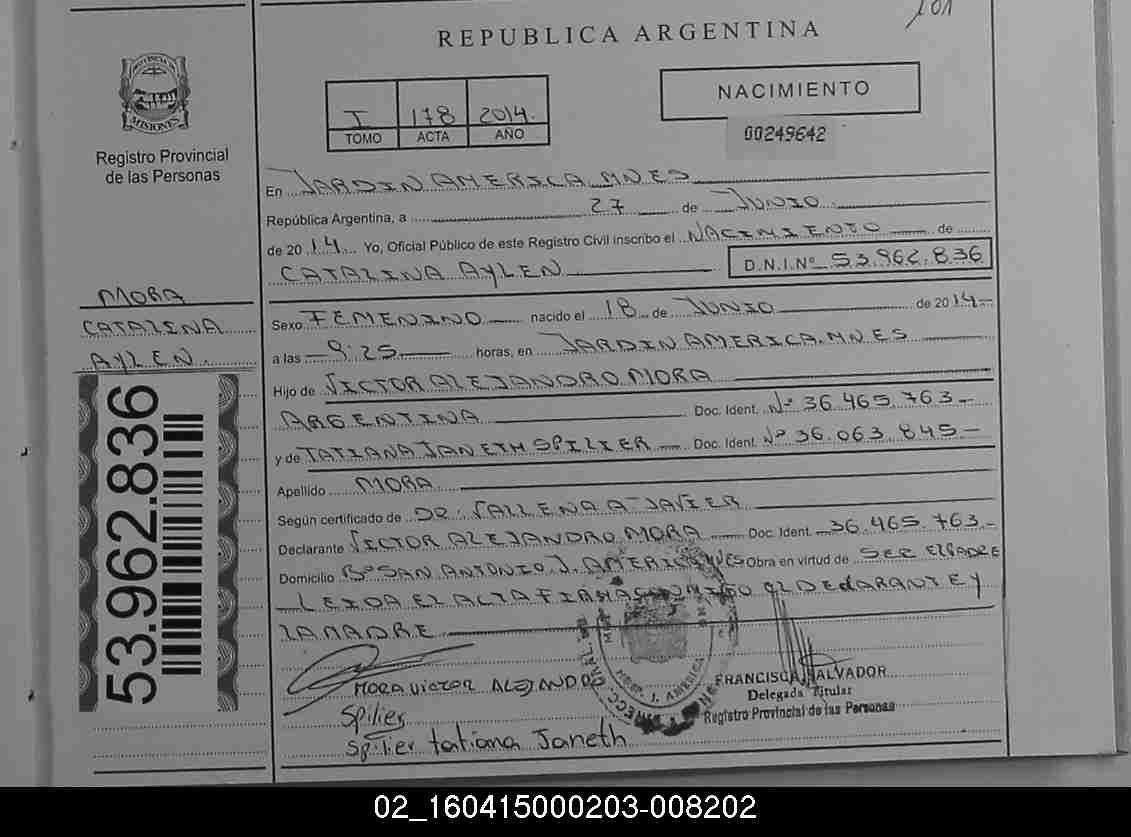 101
REPUBLICA ARGENTINA
PROVINCIA DE
MISIONES
Registro Provincial
de las Personas
I 178 2014.
TOMO ACTA AÑO
NACIMIENTO
00249642
En JARDIN AMERICA. MNES
República Argentina, a 27 de JUNIO
de 2014 Yo, Oficial Público de este Registro Civil inscribo el NACIMIENTO de
CATALINA AYLEN D.N.I.Nº 53.962.836
MORA
CATALINA
AYLEN.
53.962.836
Sexo FEMENINO nacido el 18 de JUNIO de 2014
a las 9:25 horas, en JARDIN AMERICA. MNES
Hijo de VICTOR ALEJANDRO MORA
ARGENTINA Doc. Ident. Nº 36.465.763
y de TATIANA JANETH SPILIER Doc. Ident. Nº 36.063.845
Apellido MORA
Según certificado de DR. JAVIER
Declarante VICTOR ALEJANDRO MORA Doc. Ident. 36.465.763
Domicilio Bº SAN ANTONIO J. AMERICA MNES Obra en virtud de SER EL PADRE
LEIDA EL ACTA FIRMA CONMIGO EL DEClARANTE Y
LA MADRE
MORA VICTOR ALEJANDRO
FRANCISCA SALVADOR
Delegada Titular
Registro Provincial de las Personas
Spilier
Spilier tatiana Janeth
02_160415000203-008202